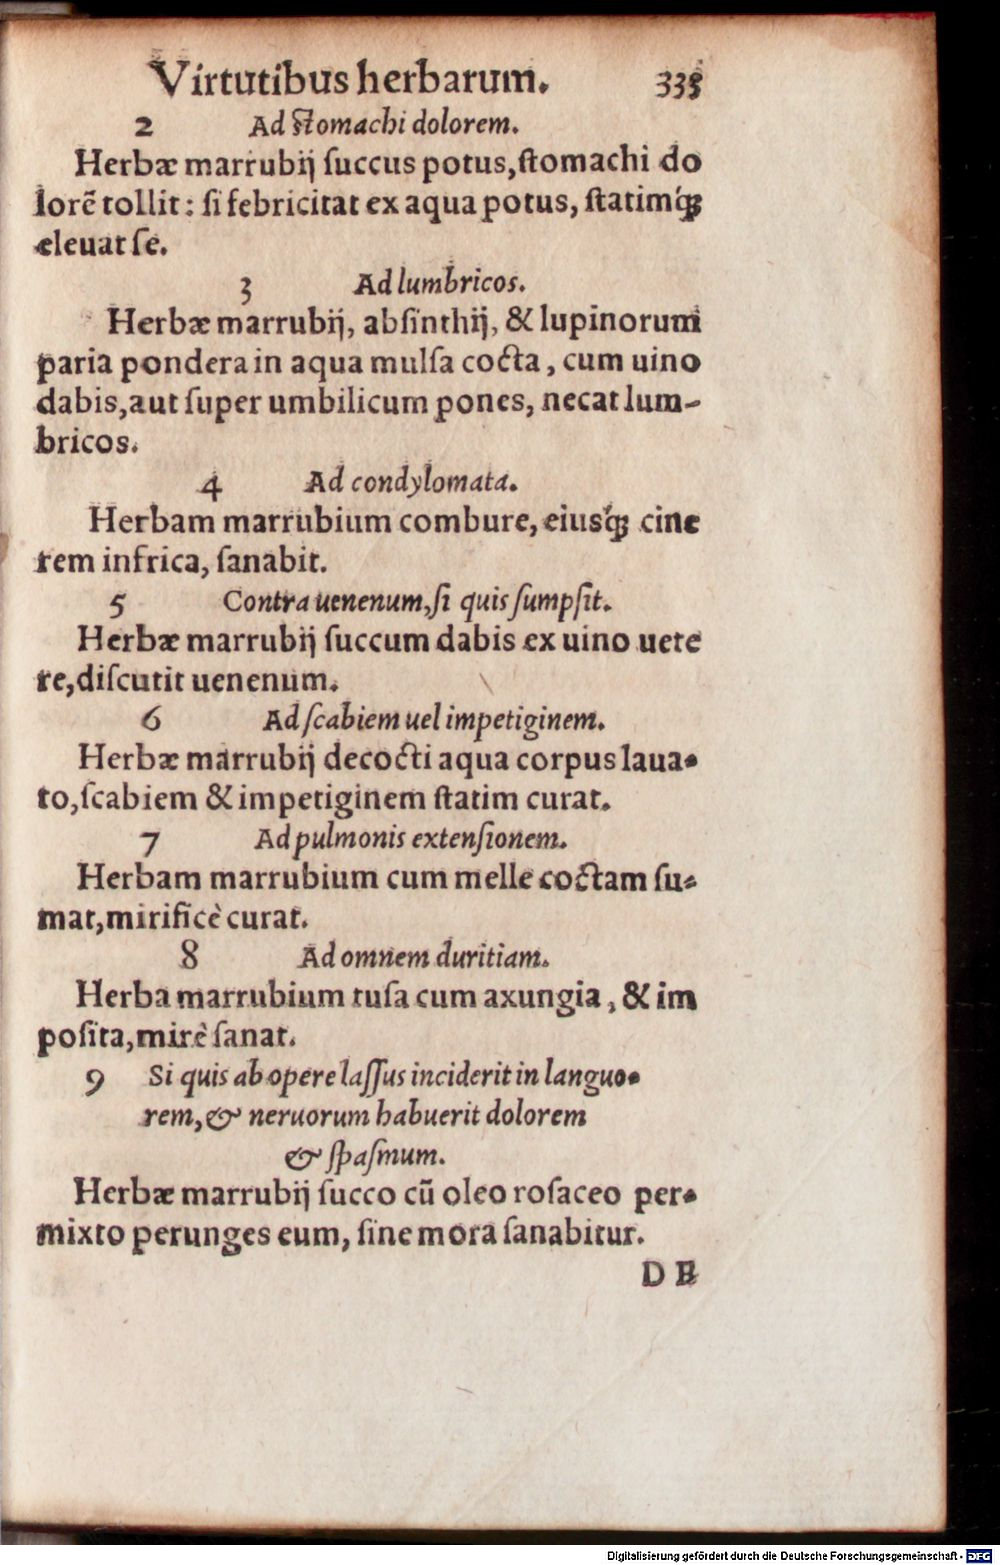 Virtutibus herbarum. 335
2 Ad ſtomachi dolorem.
Herbæ marrubij ſuccus potus, ſtomachi do
lorẽ tollit: ſi febricitat ex aqua potus, ſtatimq́ꝫ
eleuat ſe.
3 Ad lumbricos.
Herbæ marrubij, abſinthij, & lupinorum
paria pondera in aqua mulſa cocta, cum uino
dabis, aut ſuper umbilicum pones, necat lum-
bricos.
4 Ad condylomata.
Herbam marrubium combure, eiusq́ꝫ cine
rem infrica, ſanabit.
5 Contra uenenum, ſi quis ſumpſit.
Herbæ marrubij ſuccum dabis ex uino uete
re, diſcutit uenenum.
6 Ad ſcabiem uel impetiginem.
Herbæ marrubij decocti aqua corpus laua-
to, ſcabiem & impetiginem ſtatim curat.
7 Ad pulmonis extenſionem.
Herbam marrubium cum melle coctam ſu-
mat, mirificè curat.
8 Ad omnem duritiam.
Herba marrubium tuſa cum axungia, & im
poſita, mirè ſanat.
9 Si quis ab opere laſſus inciderit in languo-
rem, & neruorum habuerit dolorem
& ſpaſmum.
Herbæ marrubij ſucco cũ oleo roſaceo per-
mixto perunges eum, ſine mora ſanabitur.
DE
Digitalisierung gefördert durch die Deutsche Forschungsgemeinschaft - DFG